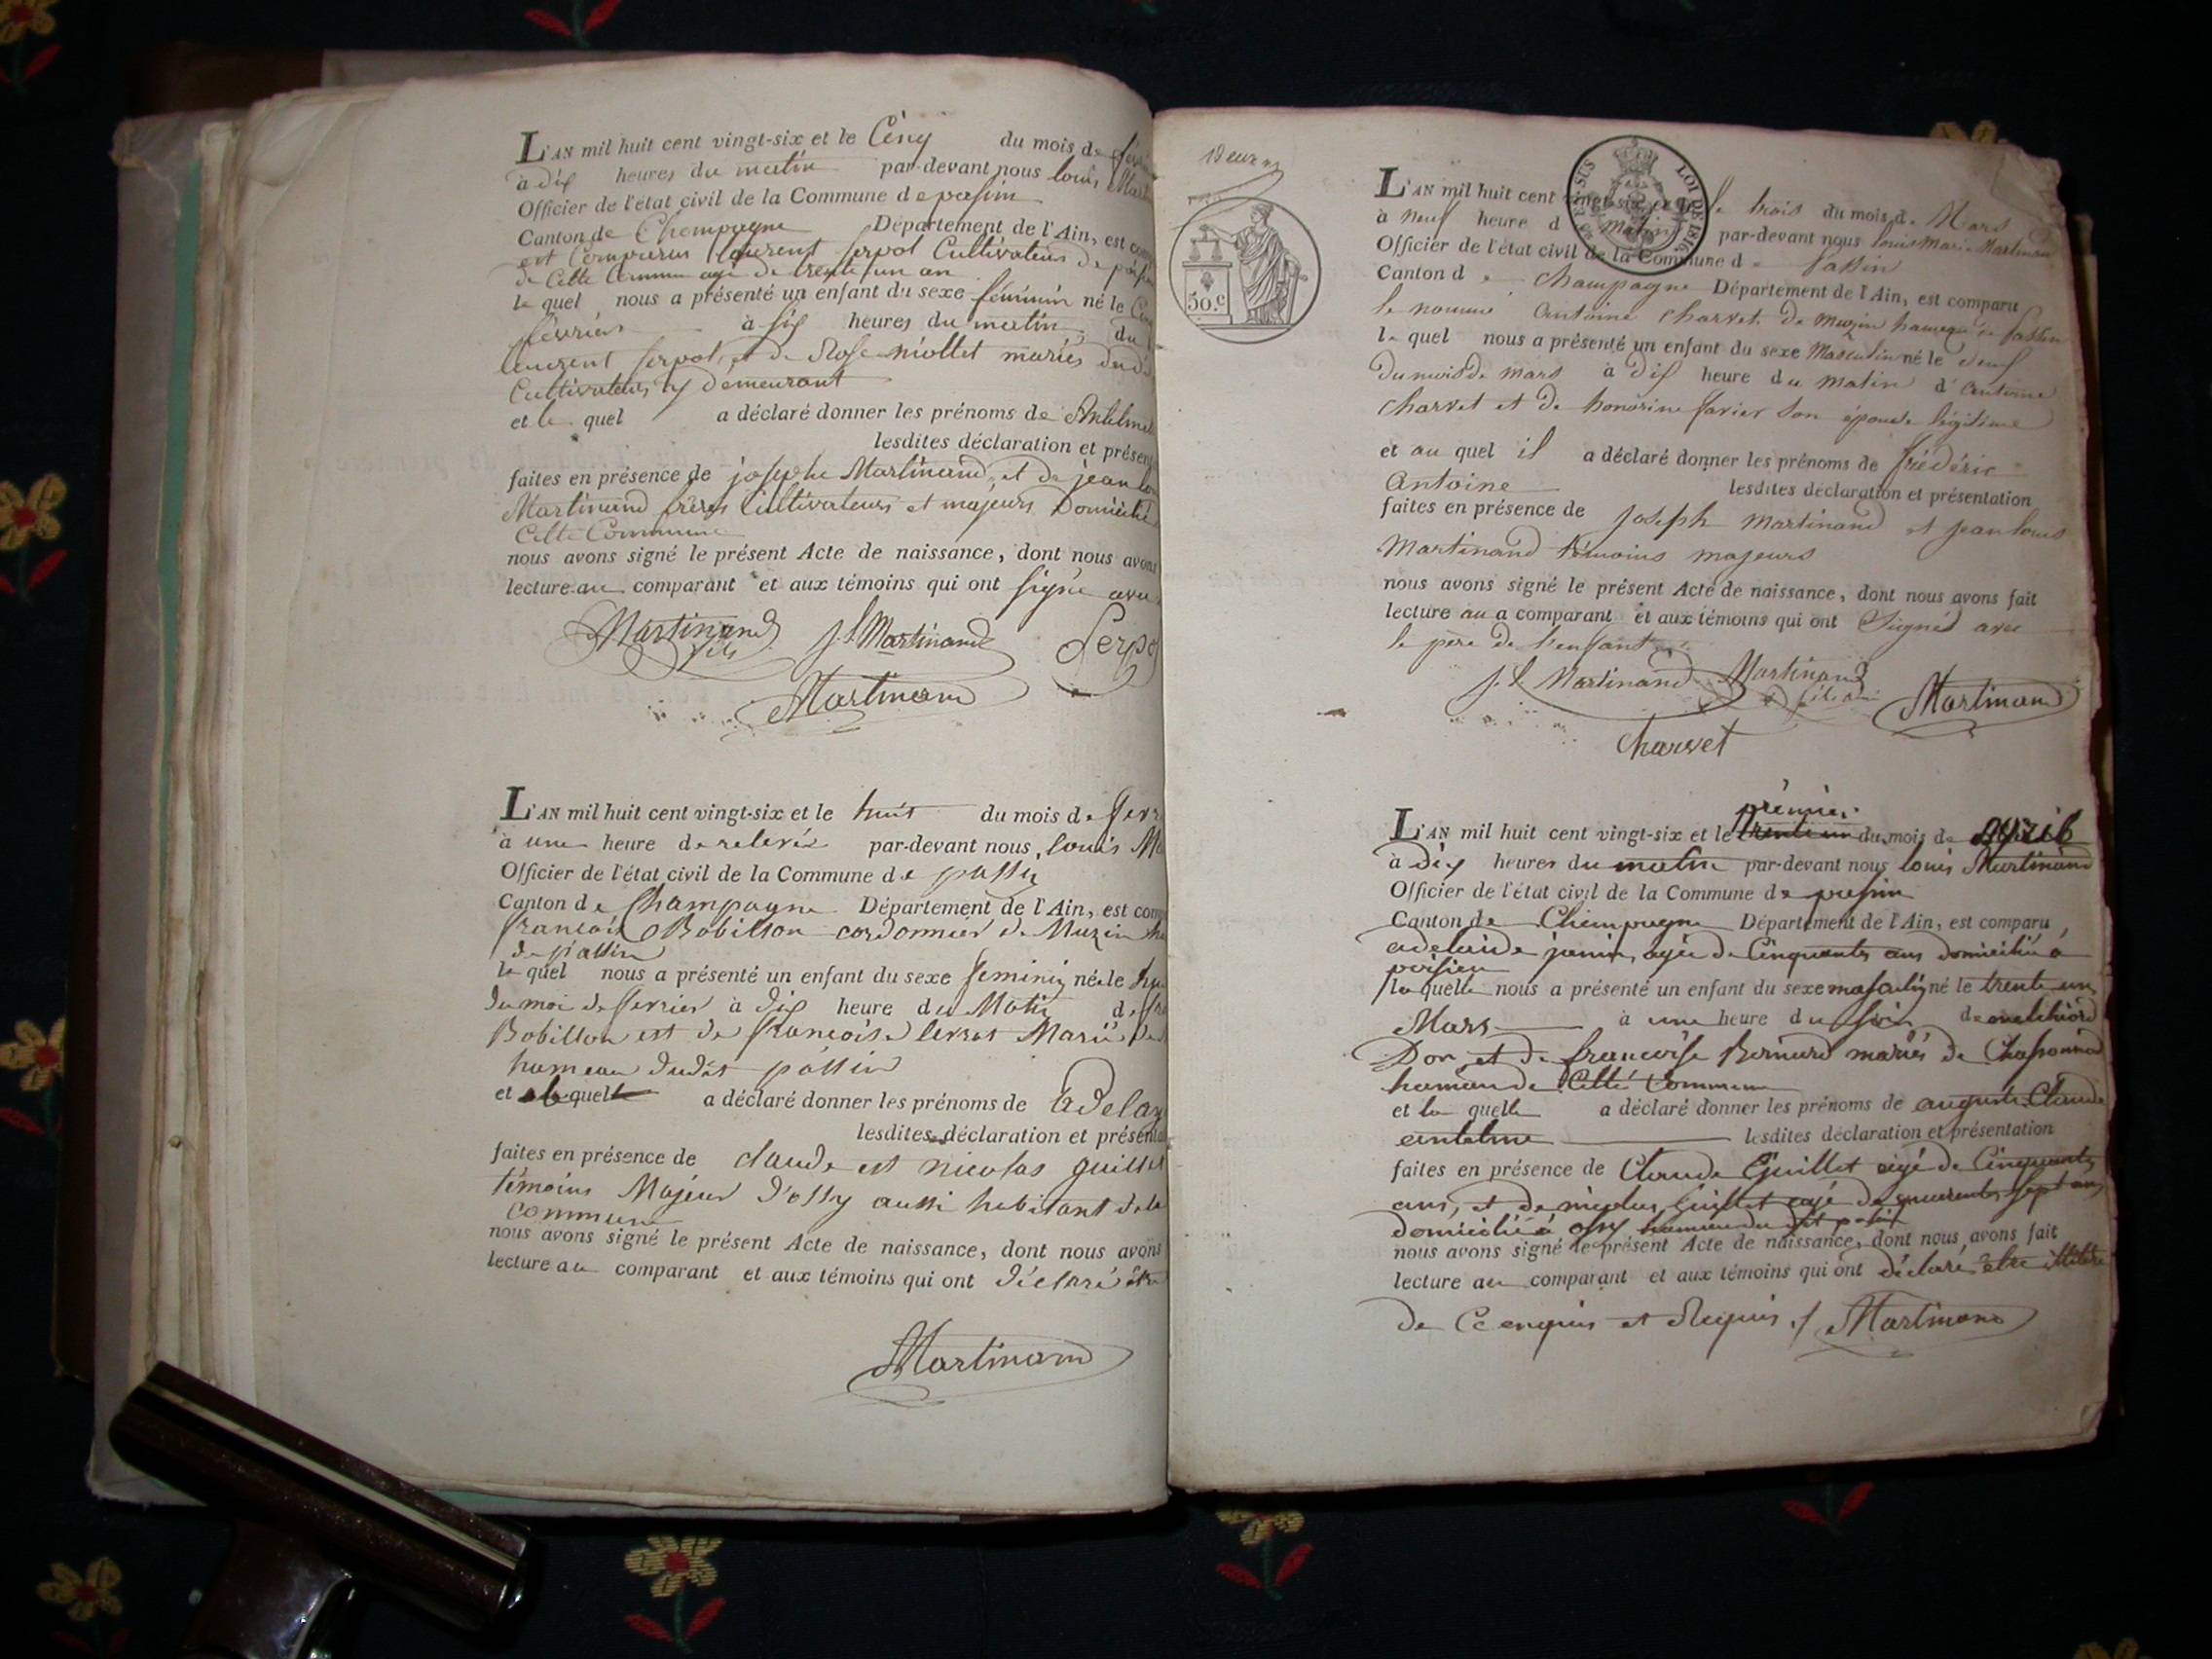 L'AN mil huit cent vingt-six et le Cinq du mois de
à dix heures du matin par-devant nous louis
Officier de l'état civil de la Commune de pasin
Canton de Champagne Département de l'Ain, est
est Comparus laurent serpol Cultivateur de
de Cette Commune agé de trente un an
le quel nous a présenté un enfant du sexe féminin né le
février à six heures du matin du
laurent serpol, et de Rose niollet mariés
Cultivateurs y demeurant
et le quel a déclaré donner les prénoms de
lesdites déclaration et
faites en présence de josephe Martinand, et de jean
Martinand frères Cultivateurs et majeurs
Cette Commune
nous avons signé le présent Acte de naissance, dont nous avons
lecture au comparant et aux témoins qui ont signé
Martinand fils J L Martinand
Martinand
L'AN mil huit cent vingt-six et le huit du mois de
à une heure de relevée par-devant nous, louis
Officier de l'état civil de la Commune de passin
Canton de Champagne Département de l'Ain, est
françois Bobillon cordonnier de Muzin
de passin
le quel nous a présenté un enfant du sexe feminin né le
du moi de fevrier à dix heure du Matin
Bobillon est de françoise levrat Marié
hameau dudit passin
et quel a déclaré donner les prénoms de
lesdites déclaration et
faites en présence de claude est nicolas guillet
témoins Majeur d'ossy aussi habitant de la
commune
nous avons signé le présent Acte de naissance, dont nous avons
lecture au comparant et aux témoins qui ont déclaré être
Martinand
SUS LOI DE 1816.
50.c
L'AN mil huit cent vingt-six et le trois du mois de Mars
à neuf heure d matin par-devant nous louis Marie Martinand
Officier de l'état civil de la Commune de Passin
Canton de Champagne Département de l'Ain, est comparu
le nommé antoine charvet de muzin hameau de passin
le quel nous a présenté un enfant du sexe Masculin né le deux
du mois de mars à dix heure du matin d'antoine
charvet et de honorine favier son épouse légitime
et au quel il a déclaré donner les prénoms de frédéric
antoine lesdites déclaration et présentation
faites en présence de joseph martinand et jean louis
martinand témoins majeurs
nous avons signé le présent Acte de naissance, dont nous avons fait
lecture au a comparant et aux témoins qui ont Signés avec
le père de l'enfant
J. L Martinand Martinand fils Martinand
Charvet
premier
L'AN mil huit cent vingt-six et le trente un du mois de avril
à dix heures du matin par-devant nous louis Martinand
Officier de l'état civil de la Commune de pasin
Canton de Champagne Département de l'Ain, est comparu
adelaide janin, agée de Cinquante ans domiciliée a
poisieu
la quelle nous a présenté un enfant du sexe masculin né le trente un
Mars à une heure du soir
Don et de francoise Bernard mariés de Chassonnod
hamau de Cette Commune
et la quelle a déclaré donner les prénoms de auguste Claude
antelme lesdites déclaration et présentation
faites en présence de Claude Guillet agé de Cinquante
ans, et de nicolas Guillet agé de quarente sept ans
domicilié à ossy hameau du dit pasin
nous avons signé le présent Acte de naissance, dont nous avons fait
lecture au comparant et aux témoins qui ont déclaré être illitéré
de Ce enquis et Requis ./ Martinand